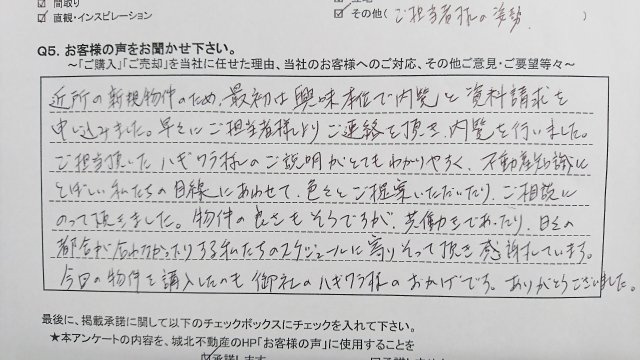 ☑ 間取り
☑ 直観・インスピレーション
☑ その他(ご担当者様の姿勢)
Q5. お客様の声をお聞かせ下さい。
～「ご購入」「ご売却」を当社に任せた理由、当社のお客様へのご対応、その他ご意見・ご要望等々～
近所の新規物件のため、最初は興味本位で内覧と資料請求を
申し込みました。早々にご担当者様よりご連絡を頂き、内覧を行いました。
ご担当頂いたハギワラ様のご説明がとてもわかりやすく、不動産知識に
とぼしい私たちの目線にあわせて、色々とご提案いただいたり、ご相談に
のって頂きました。物件の良さもそうですが、共働きであったり、日々の
都合が合わなかったりする私たちのスケジュールに寄りそって頂き感謝しています。
今回の物件を購入したのも御社のハギワラ様のおかげです。ありがとうございました。
最後に、掲載承諾に関して以下のチェックボックスにチェックを入れて下さい。
★本アンケートの内容を、城北不動産のHP「お客様の声」に使用することを
☑承諾します